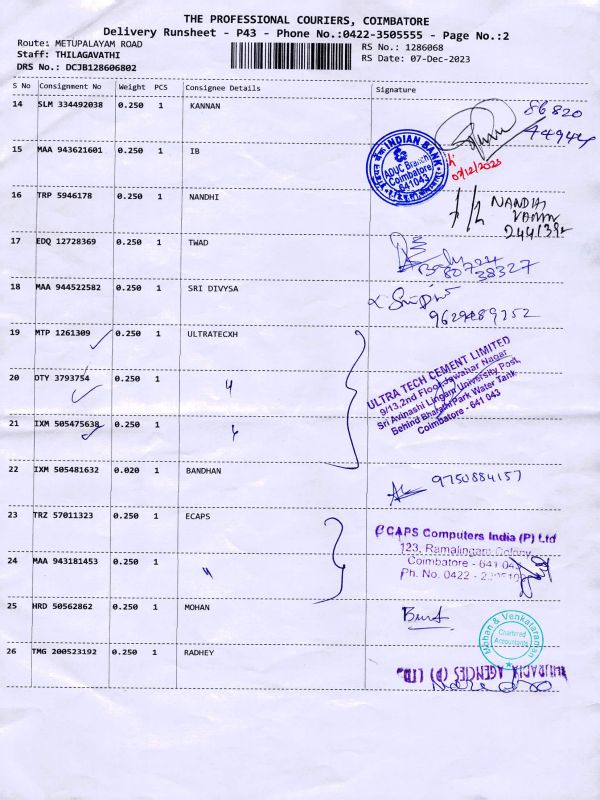 THE PROFESSIONAL COURIERS, COIMBATORE
Delivery Runsheet - P43 - Phone No.:0422-3505555 - Page No.:2
Route: METUPALAYAM ROAD
RS No.: 1286068
Staff: THILAGAVATHI
RS Date: 07-Dec-2023
DRS No.: DCJB128606802
S No Consignment No Weight PCS Consignee Details Signature
14 SLM 334492038 0.250 1 KANNAN
86820
44944
15 MAA 943621601 0.250 1 IB
INDIAN BANK
ADUC Branch
Coimbatore
641043
07/12/2023
16 TRP 5946178 0.250 1 NANDHI
NANDHI
17 EDQ 12728369 0.250 1 TWAD
80724
38327
18 MAA 944522582 0.250 1 SRI DIVYSA
9629489252
19 MTP 1261309 0.250 1 ULTRATECXH
20 DTY 3793754 0.250 1 "
21 IXM 505475638 0.250 1 "
ULTRA TECH CEMENT LIMITED
9/13,2nd Floor,Jawahar Nagar
Sri Avinashi Lingam University Post,
Behind Bharathi Park Water Tank
Coimbatore - 641 043
22 IXM 505481632 0.020 1 BANDHAN
9750884157
23 TRZ 57011323 0.250 1 ECAPS
24 MAA 943181453 0.250 1 "
ECAPS Computers India (P) Ltd
123, Ramalingam Colony
Coimbatore - 641 043
Ph. No. 0422 -
25 HRD 50562862 0.250 1 MOHAN
Mohan & Venkataraman
Chartered
Accountants
26 TMG 200523192 0.250 1 RADHEY
AGENCIES (P) LTD.